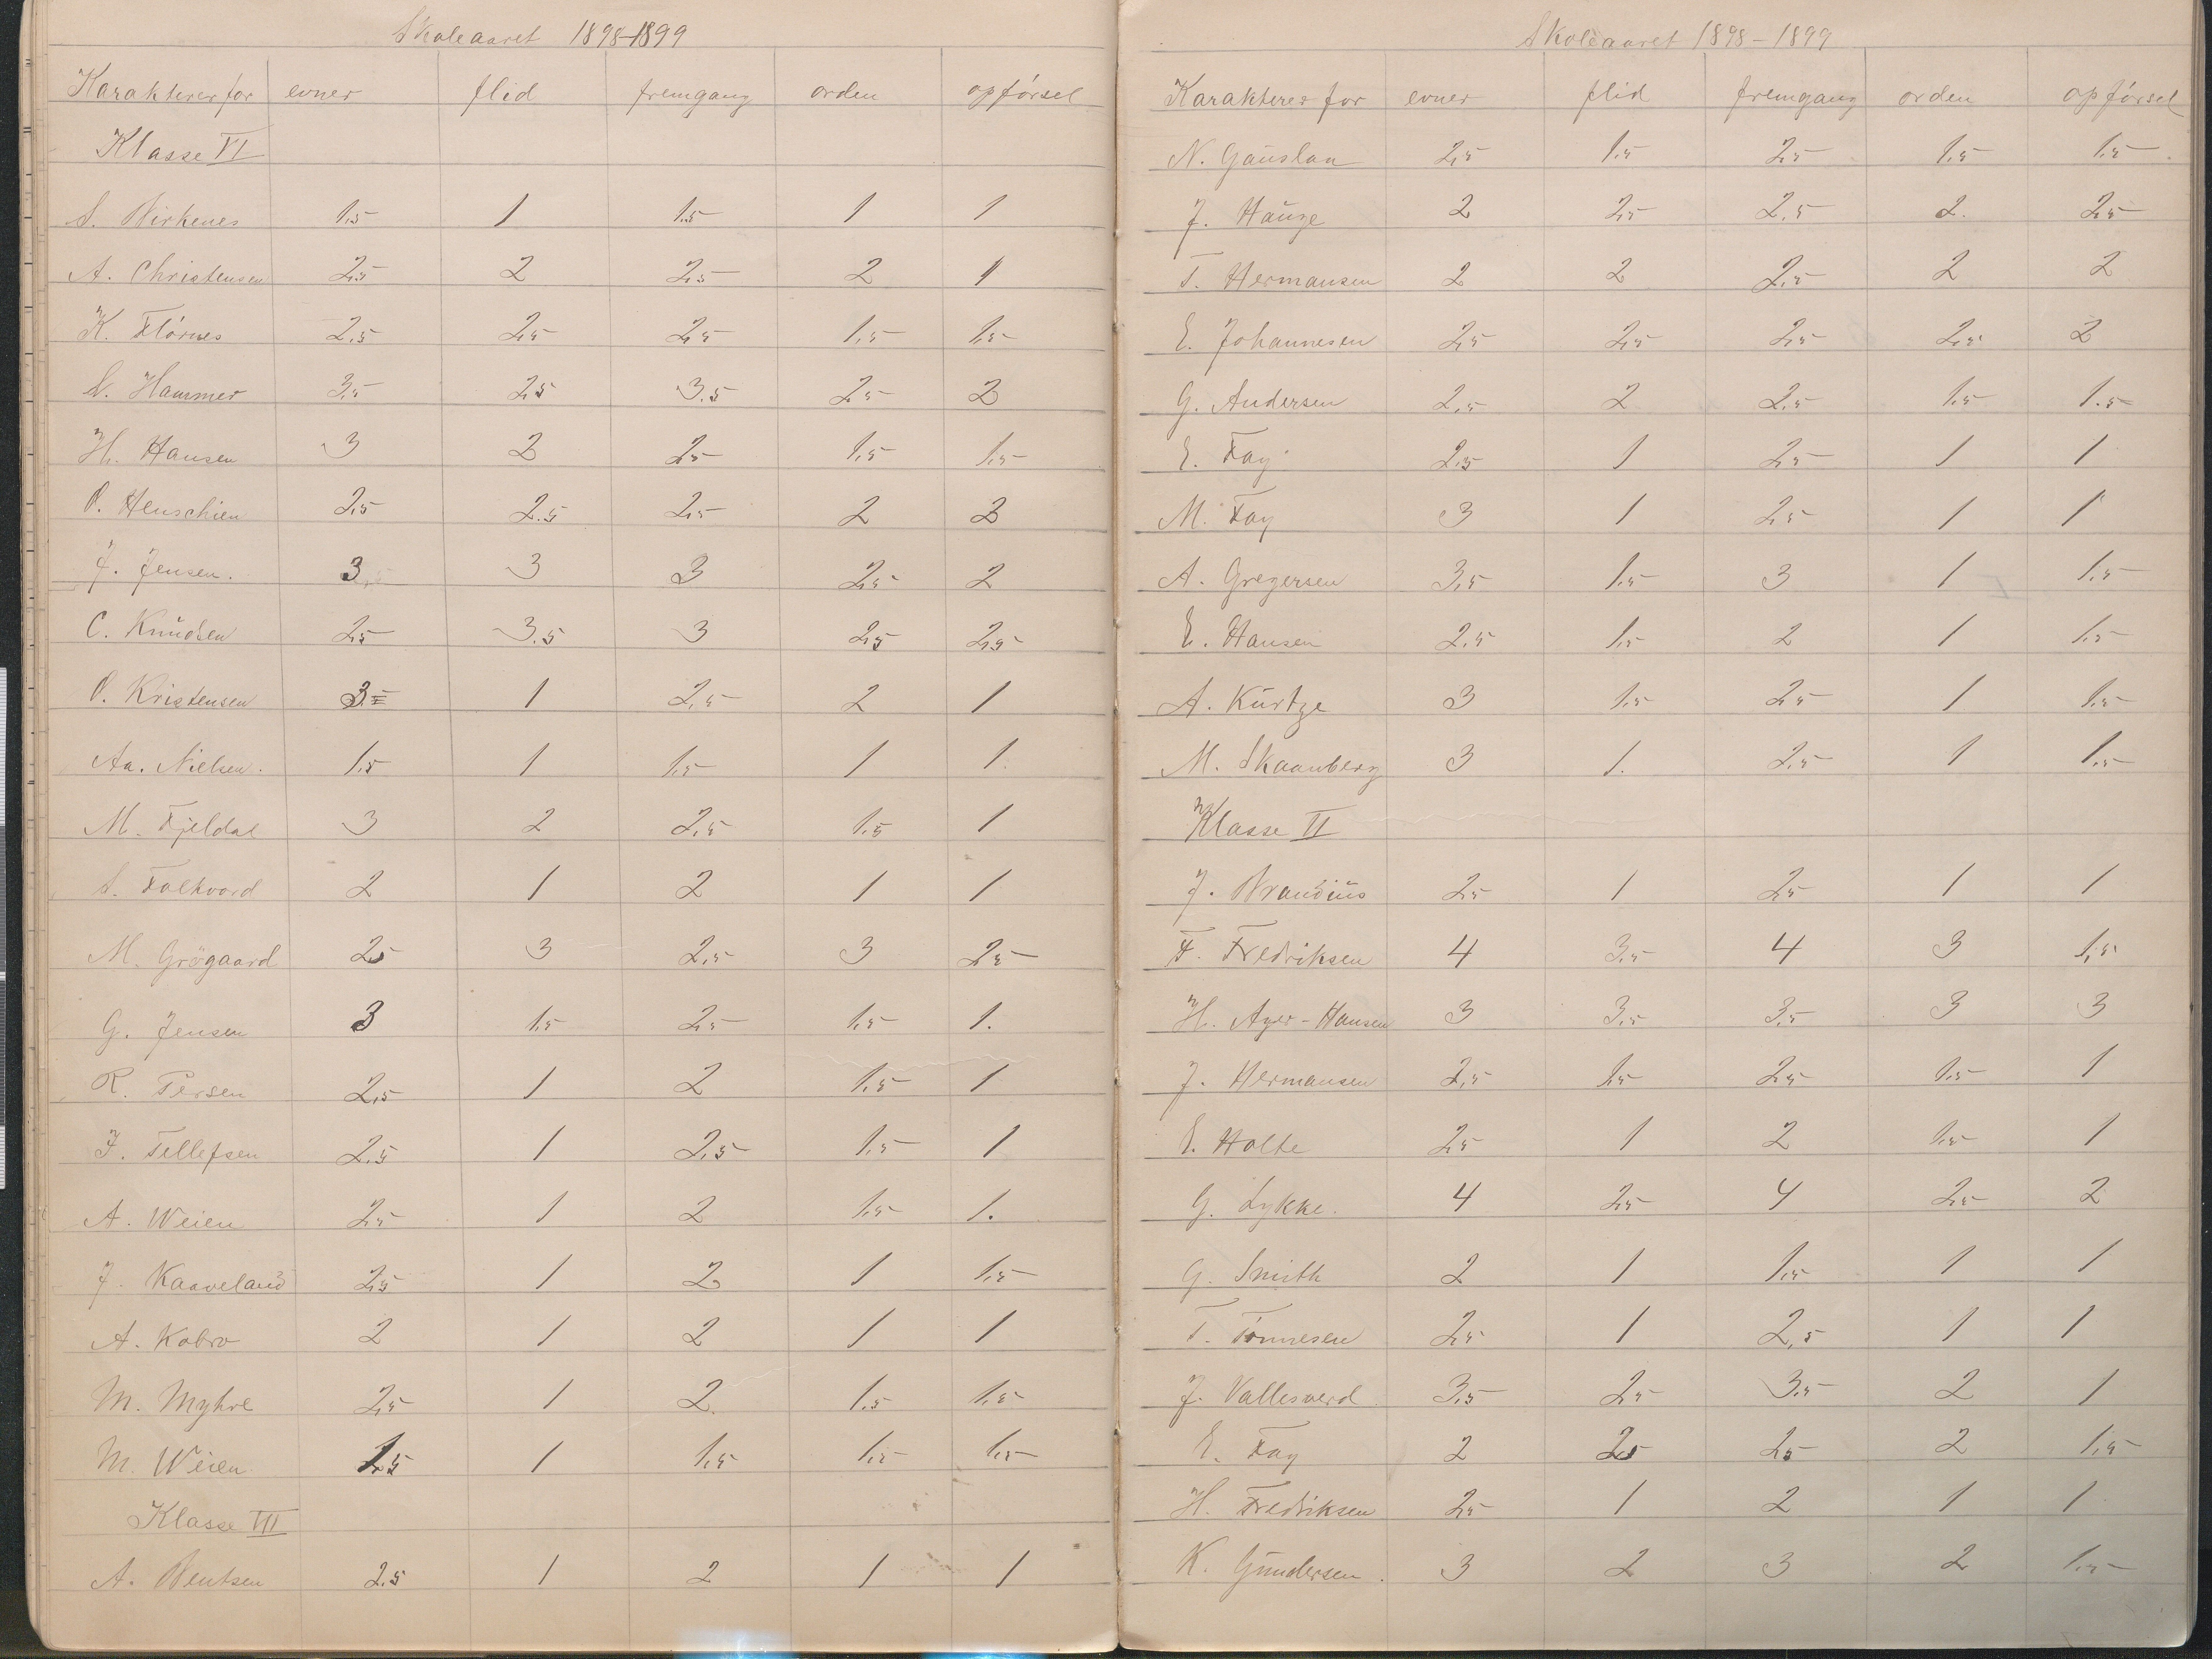 Skoleaaret 1898-1899
Karakterer for evner flid fremgang orden opførsel
Klasse VI
S. Birkenes 1.5 1 1.5 1 1
A. Christensen 2.5 2 2.5 2 1
K. Flörnes 2.5 2.5 2.5 1.5 1.5
N. Hammer 3.5 2.5 3.5 2.5 2
H. Hansen 3 2 2.5 1.5 1.5
O. Henschien 2.5 2.5 2.5 2 2
J. Jensen. 3 3 3 2.5 2
C. Knudsen 2.5 3.5 3 2.5 2.5
O. Kristensen 3 1 2.5 2 1
Aa. Nielsen. 1.5 1 1.5 1 1.
M. Fjeldal 3 2 2.5 1.5 1
S. Falkvard 2 1 2 1 1
M. Grögaard 2.5 3 2.5 3 2.5
G. Jensen 3 1.5 2.5 1.5 1.
R. Persen 2.5 1 2 1.5 1
F. Tellefsen 2.5 1 2.5 1.5 1
A. Weien 2.5 1 2 1.5 1.
J. Kaaveland 2.5 1 2 1 1.5
A. Kobro 2 1 2 1 1
M. Myhre 2.5 1 2 1.5 1.5
M. Weien 1.5 1 1.5 1.5 1.5
Klasse VII
A. Bentsen 2.5 1 2 1 1
Skoleaaret 1898-1899
Karakterer for evner flid fremgang orden opførsel
N. Gauslaa 2.5 1.5 2.5 1.5 1.5
J. Hauge 2 2.5 2.5 2. 2.5
T. Hermansen 2 2 2.5 2 2
E. Johannesen 2.5 2.5 2.5 2.5 2
G. Andersen 2.5 2 2.5 1.5 1.5
E. Fay 2.5 1 2.5 1 1
M. Fay 3 1 2.5 1 1
A. Gregersen 3.5 1.5 3 1 1.5
E. Hansen 2.5 1.5 2 1 1.5
A. Kurtze 3 1.5 2.5 1 1.5
M. Skaanberg 3 1. 2.5 1 1.5
Klasse VI
J. Brandius 2.5 1 2.5 1 1
F. Fredriksen 4 3.5 4 3 1.5
H. Ager-Hansen 3 3.5 3.5 3 3
J. Hermansen 2.5 1.5 2.5 1.5 1
E. Holte 2.5 1 2 1.5 1
G. Lykke. 4 2.5 4 2.5 2
G. Smith 2 1 1.5 1 1
T. Tönnesen 2.5 1 2.5 1 1
J. Vallesværd 3.5 2.5 3.5 2 1
E. Fay 2 2.5 2.5 2 1.5
H. Fredriksen 2.5 1 2 1 1
K. Gundersen. 3 2 3 2 1.5